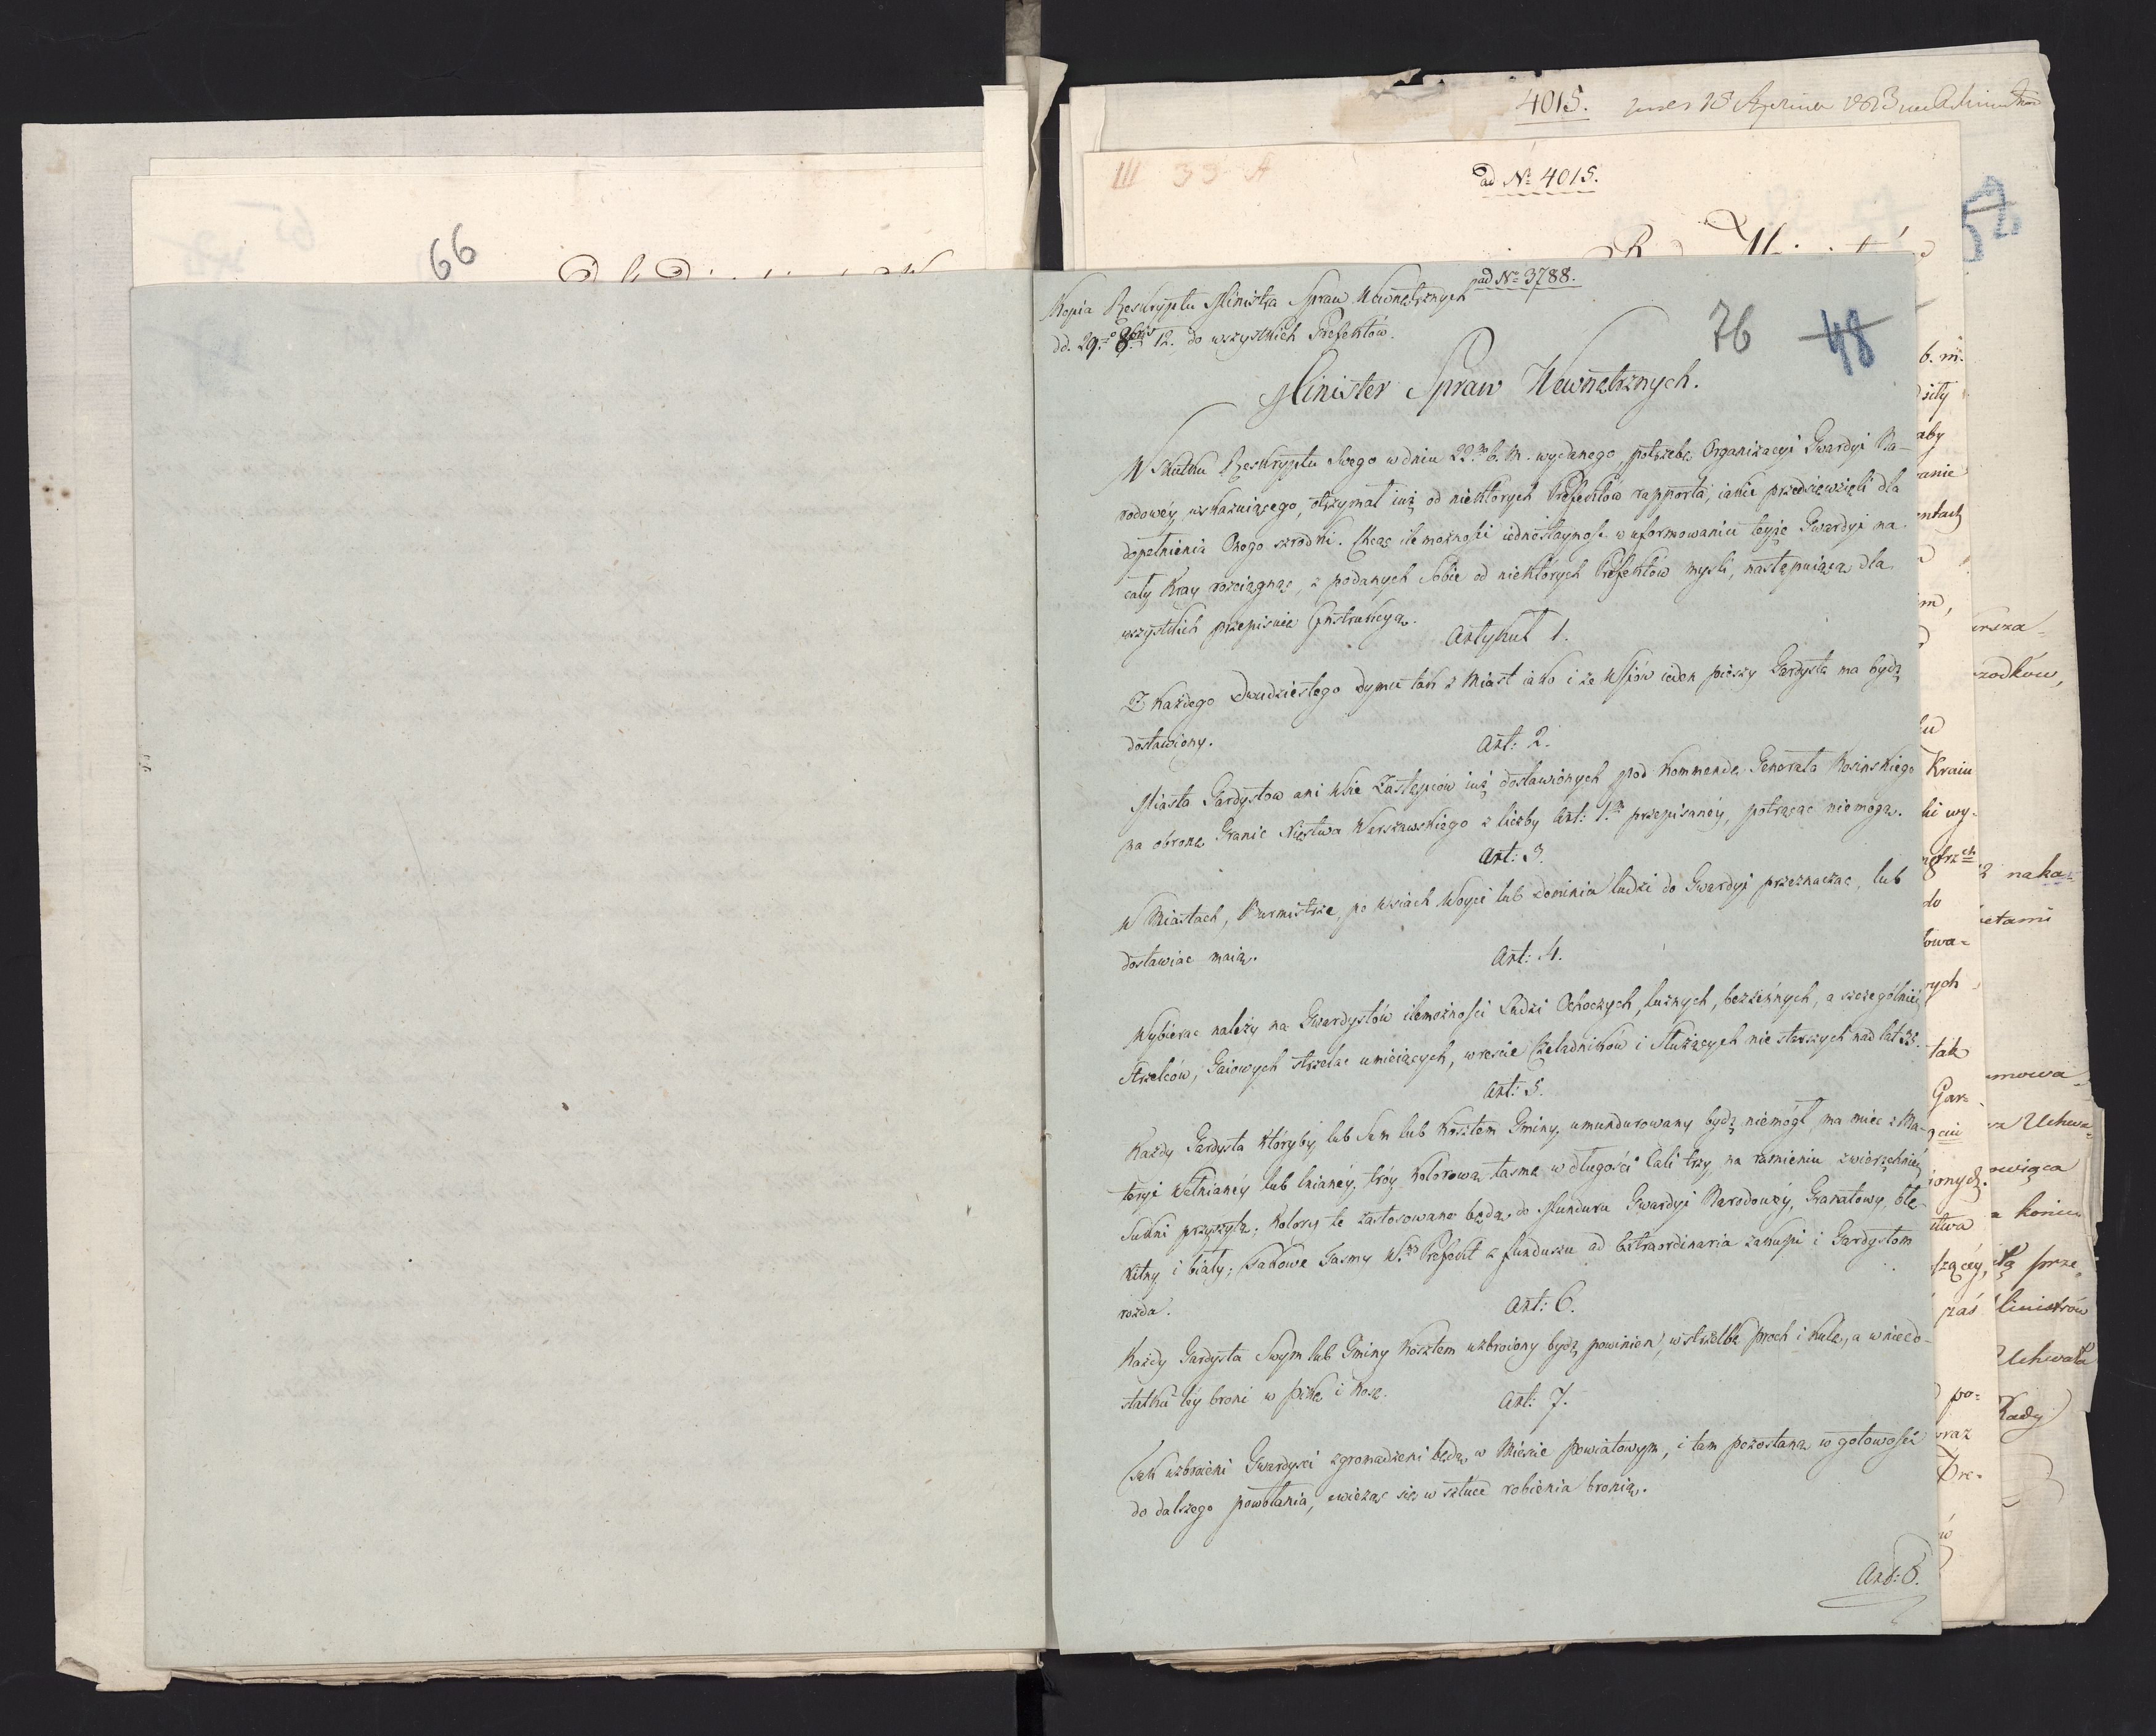 66
4015.
III 33 A
ad N: 4015.
52
ad No 3788.
Kopia Reskryptu Ministra Spraw Wewnętrznych
dd. 29.o 8bris 12. do wszystkich Prefektów.
76 48
Minister Spraw Wewnętrznych.
W Skutku Reskryptu Swego w dniu 22.m b. M. wydanego, potrzebę Organizacyi Gwardyi Na-
rodowéy wskazuiącego, otrzymał iuż od niektorych Prefektów rapporta, iakie przedsięwzięli dla
dopełnienia Onego szrodki. Chcąc ile możności iednostayność w uformowaniu teyże Gwardyi na
cały Kray rozciągnąć, z podanych Sobie od niektórych Prefektów myśli, następuiącą dla
wszystkich przepisuie Instrukcyą.
Artykuł 1.
Z każdego Dwudziestego dymu tak z Miast iako i ze Wsiów ieden pieszy Gardysta ma bydź
dostawiony.
Art: 2.
Miasta Gardystow ani Wsie Zastępców iuż dostawionych pod Kommendę Generała Kosinskiego
na obronę Granic Xięstwa Warszawskiego z liczby Art: 1.m przepisanéy, potrącać niemogą.
Art: 3.
W Miastach, Burmistrze, po Wsiach Woyci lub Dominia ludzi do Gwardyi przeznaczać, lub
dostawiać maią.
Art: 4.
Wybierac należy na Gwardystów ilemożności Ludzi Ochoczych, luźnych, bezżennych, a szczególniéy
Strzelców, Gaiowych strzelac umieiących, wreście Czeladników i Służących nie starszych nad lat 35.
Art: 5.
Każdy Gardysta któryby lub Sam lub kosztem Gminy, umundurowany bydź niemógł, ma mieć z Ma-
teryi Wełnianéy lub lnianéy, tróy kolorową tasmę w długości Cali trzy, na ramieniu zwierzchniéy
Sukni przyszytą; Kolory te zastosowane będą do Munduru Gwardyi Narodowéy, Granatowy, błę-
kitny i biały; Takowe Tasmy W.ny Prefekt z funduszu ad Extraordinaria zakupi i Gardystom
rozda.
Art: 6.
Każdy Gardysta Swym lub Gminy Kosztem uzbroiony bydź powinien, w strzelbę proch i kule, a w niedo-
statku téy broni w pikę i kosę.
Art: 7.
Tak uzbroieni Gwardyści zgromadzeni będą w Mieście powiatowym, i tam pozostaną w gotowości
do dalszego powołania, cwicząc się w sztuce robienia bronią.
Art: 8.